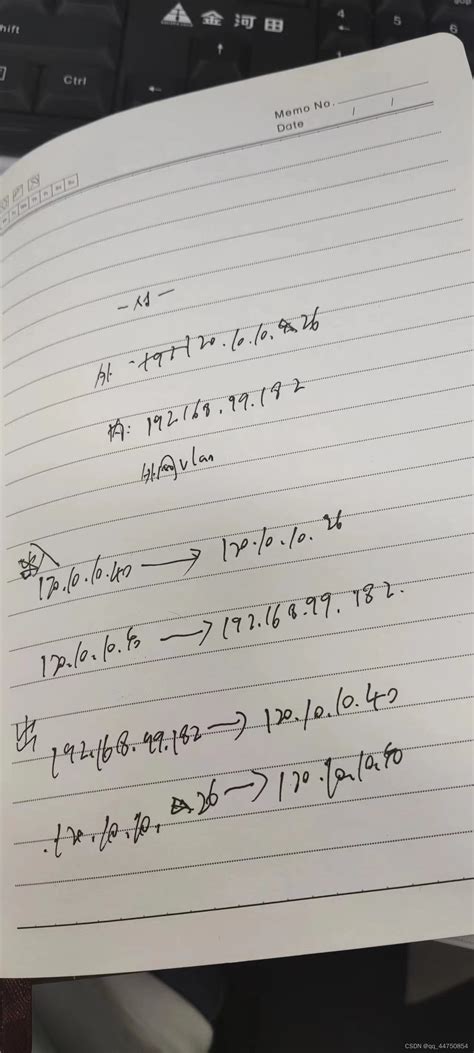 hift
Ctrl
金河田
4
5
6
Memo No.
Date / /
外 120.10.10.26
内: 192.168.99.182
外网vlan
入
120.10.10.40 → 120.10.10.26
120.10.10.40 → 192.168.99.182.
出
192.168.99.182 → 120.10.10.40
120.10.10.26 → 120.10.10.40
CSDN @qq_44750854